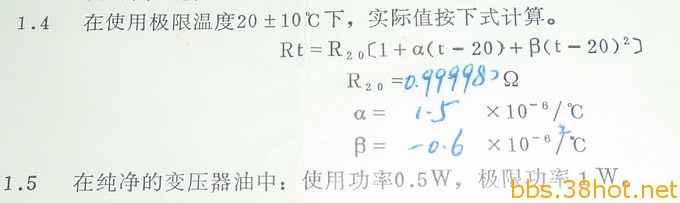 1.4 在使用极限温度20±10℃下，实际值按下式计算。
Rt=R₂₀〔1+α(t-20)+β(t-20)²〕
R₂₀=0.99998 Ω
α= 1.5 ×10⁻⁶/℃
β= -0.6 ×10⁻⁶/℃²
1.5 在纯净的变压器油中：使用功率0.5W，极限功率1W。
bbs.38hot.net